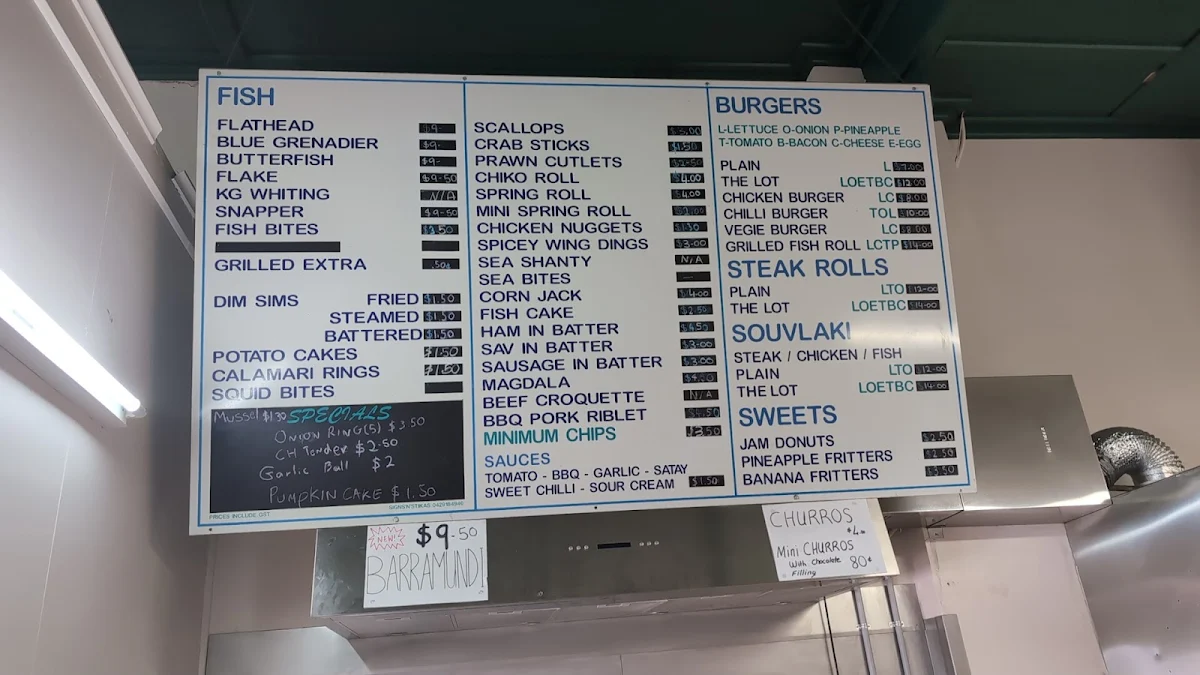 FISH
FLATHEAD $9-
BLUE GRENADIER $9-
BUTTERFISH $9-
FLAKE $9-50
KG WHITING N/A
SNAPPER $9-50
FISH BITES
GRILLED EXTRA .50¢
DIM SIMS FRIED $1.50
STEAMED $1.50
BATTERED $1.50
POTATO CAKES $1.50
CALAMARI RINGS $1.50
SQUID BITES
Mussel $1.30 SPECIALS
ONION RING(5) $3.50
CH Tender $2.50
Garlic Ball $2
PUMPKIN CAKE $1.50
PRICES INCLUDE GST
SCALLOPS
CRAB STICKS $1.50
PRAWN CUTLETS $2-50
CHIKO ROLL $4.00
SPRING ROLL $4.00
MINI SPRING ROLL
CHICKEN NUGGETS $1.30
SPICEY WING DINGS $3-00
SEA SHANTY N/A
SEA BITES
CORN JACK $4-00
FISH CAKE $2-50
HAM IN BATTER $4.50
SAV IN BATTER $3-00
SAUSAGE IN BATTER $3.00
MAGDALA $4.50
BEEF CROQUETTE N/A
BBQ PORK RIBLET $4.50
MINIMUM CHIPS
SAUCES
TOMATO - BBQ - GARLIC - SATAY
SWEET CHILLI - SOUR CREAM $1.50
BURGERS
L-LETTUCE O-ONION P-PINEAPPLE
T-TOMATO B-BACON C-CHEESE E-EGG
PLAIN L $7.00
THE LOT LOETBC $12.00
CHICKEN BURGER LC $8.00
CHILLI BURGER TOL $10-00
VEGIE BURGER LC $8.00
GRILLED FISH ROLL LCTP $14-00
STEAK ROLLS
PLAIN LTO $12-00
THE LOT LOETBC $14-00
SOUVLAKI
STEAK / CHICKEN / FISH
PLAIN LTO $12-00
THE LOT LOETBC $14-00
SWEETS
JAM DONUTS $2.50
PINEAPPLE FRITTERS $2.50
BANANA FRITTERS $3.50
NEW! $9.50
BARRAMUNDI
CHURROS
$4
Mini CHURROS
With Chocolate 80¢
Filling